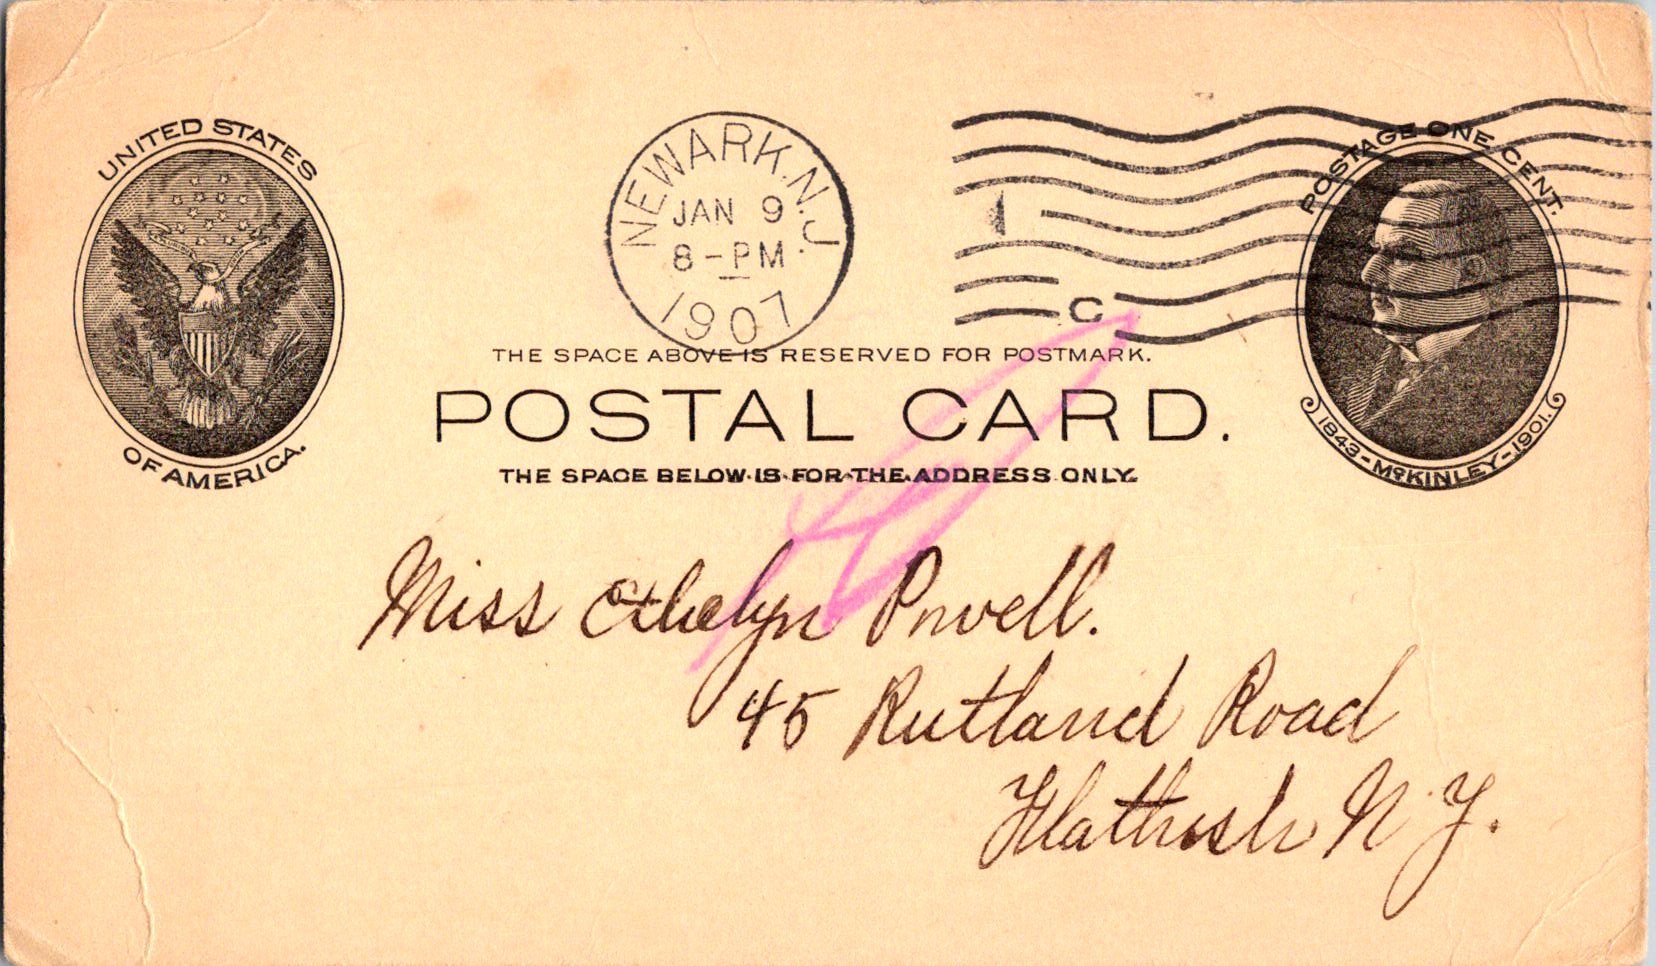 UNITED STATES
OF AMERICA.
NEWARK. N.J.
JAN 9
8-PM
1907
C
POSTAGE ONE CENT.
1843-McKINLEY-1901.
THE SPACE ABOVE IS RESERVED FOR POSTMARK.
POSTAL CARD.
THE SPACE BELOW IS FOR THE ADDRESS ONLY.
Miss Ethelyn Powell.
45 Rutland Road
Flatbush N.Y.